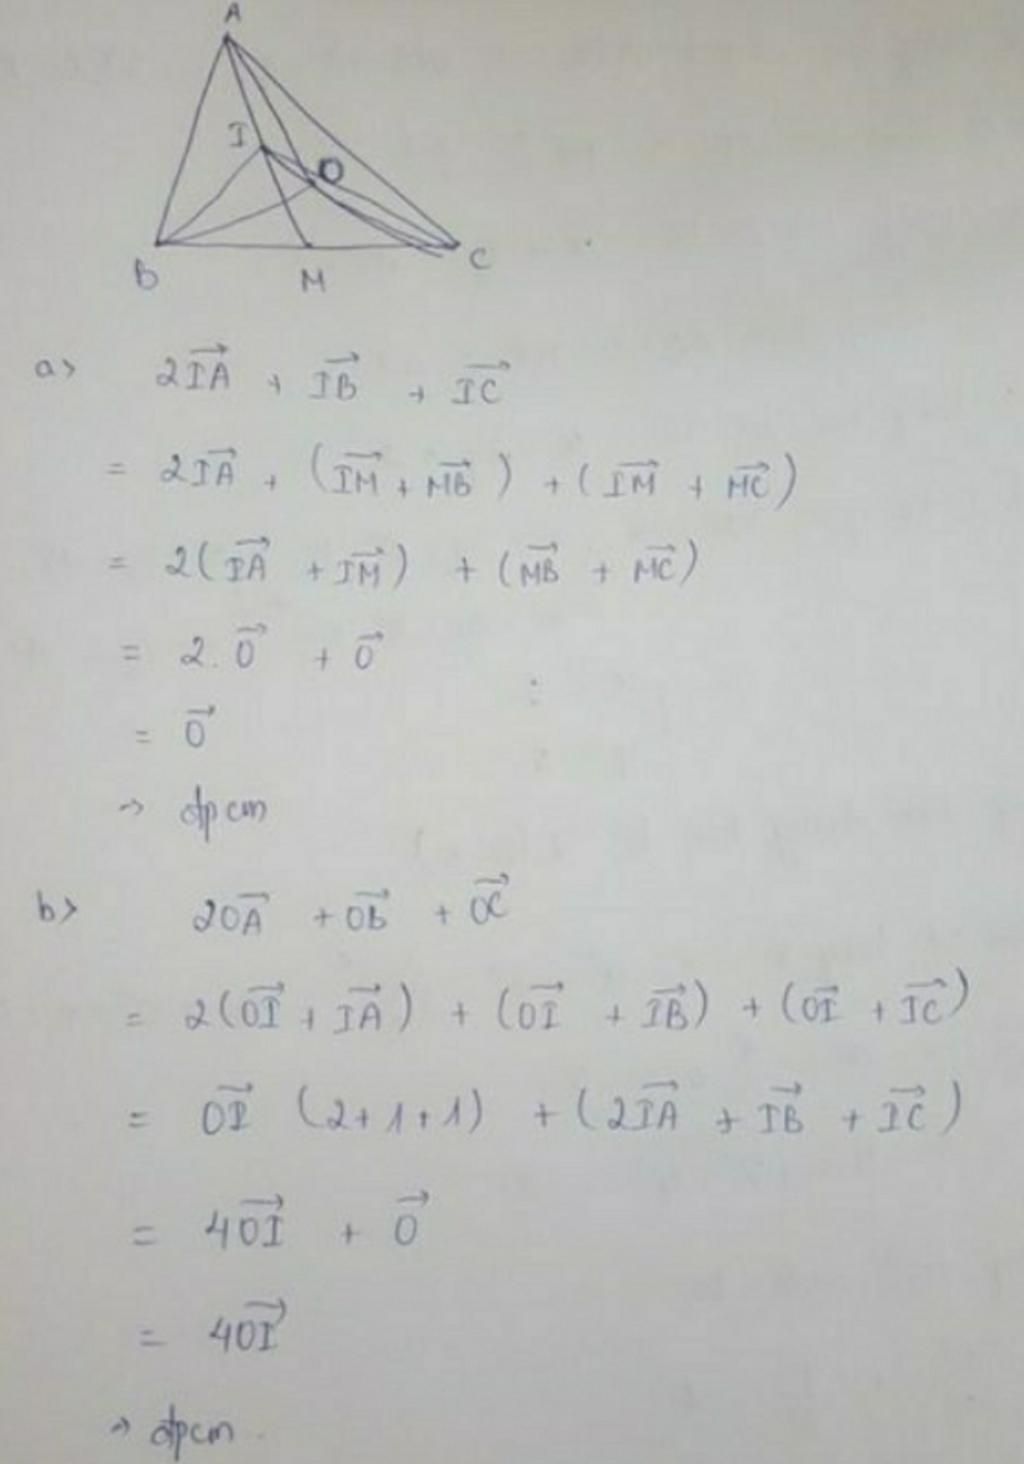 A
I
O
B M C
a> 2\vec{IA} + \vec{IB} + \vec{IC}
= 2\vec{IA} + (\vec{IM} + \vec{MB}) + (\vec{IM} + \vec{MC})
= 2(\vec{IA} + \vec{IM}) + (\vec{MB} + \vec{MC})
= 2.\vec{0} + \vec{0}
= \vec{0}
→ đpcm
b> 2\vec{OA} + \vec{OB} + \vec{OC}
= 2(\vec{OI} + \vec{IA}) + (\vec{OI} + \vec{IB}) + (\vec{OI} + \vec{IC})
= \vec{OI} (2+1+1) + (2\vec{IA} + \vec{IB} + \vec{IC})
= 4\vec{OI} + \vec{0}
= 4\vec{OI}
→ đpcm.